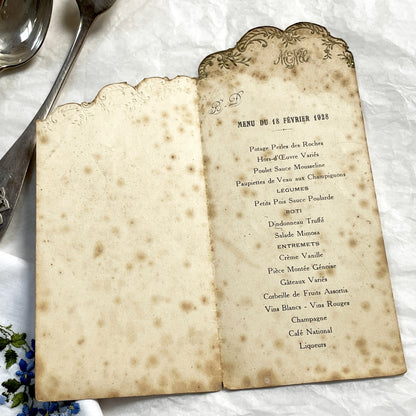 Menu
R - D
MENU DU 18 FÉVRIER 1928
Potage Perles des Roches
Hors-d'Œuvre Variés
Poulet Sauce Mousseline
Paupiettes de Veau aux Champignons
LÉGUMES
Petits Pois Sauce Poularde
ROTI
Dindonneau Truffé
Salade Mimosa
ENTREMETS
Crème Vanille
Pièce Montée Génoise
Gâteaux Variés
Corbeille de Fruits Assortis
Vins Blancs - Vins Rouges
Champagne
Café National
Liqueurs